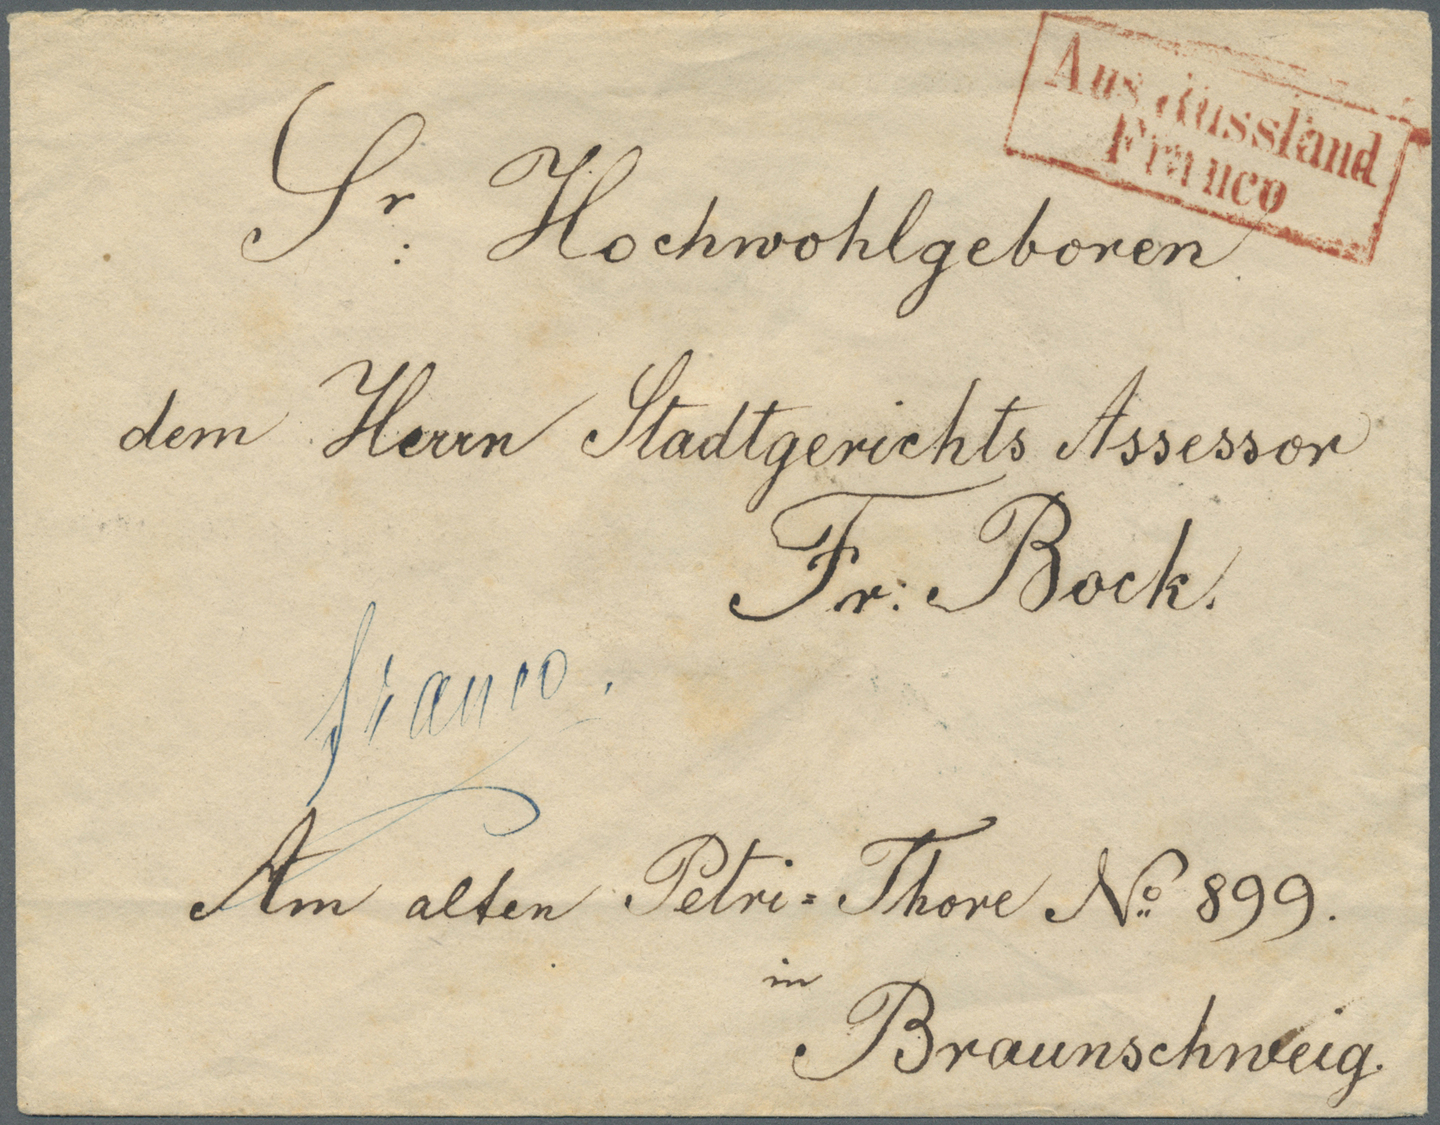 Aus Russland
Franco
Sr: Hochwohlgeboren
dem Herrn Stadtgerichts Assessor
Fr: Bock.
franco.
Am alten Petri=Thore No: 899.
in
Braunschweig.